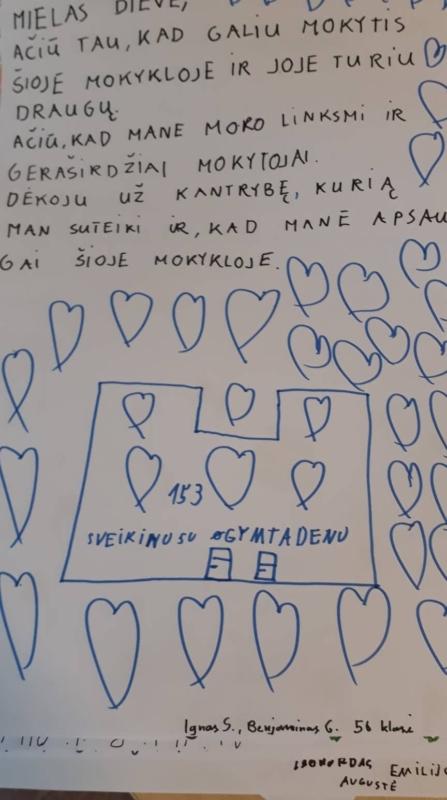 MIELAS DIEVE,
AČIŪ TAU, KAD GALIU MOKYTIS
ŠIOJE MOKYKLOJE IR JOJE TURIU
DRAUGŲ.
AČIŪ, KAD MANE MOKO LINKSMI IR
GERAŠIRDŽIAI MOKYTOJAI.
DĖKOJU UŽ KANTRYBĘ, KURIĄ
MAN SUTEIKI IR, KAD MANĖ APSAU
GAI ŠIOJE MOKYKLOJE.
153
SVEIKINU SU GYMTADENU
Ignas S., Benjaminas G. 5b klasė
EMILIJ
AUGUSTĖ